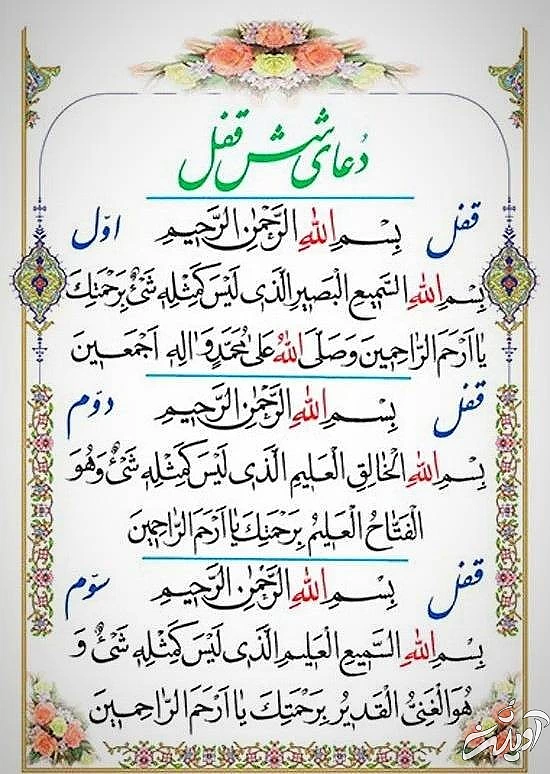 دُعای شش قفل
قفل اوّل
بِسْمِ اللهِ الرَّحْمٰنِ الرَّحِيمِ
بِسْمِ اللهِ السَّمِيعِ الْبَصِيرِ الَّذِی لَيْسَ كَمِثْلِهِ شَیْءٌ بِرَحْمَتِكَ
يٰا اَرْحَمَ الرّٰاحِمِينَ وَصَلَّی اللهُ عَلیٰ مُحَمَّدٍ وَاٰلِهِ اَجْمَعِينَ
قفل دوّم
بِسْمِ اللهِ الرَّحْمٰنِ الرَّحِيمِ
بِسْمِ اللهِ الْخٰالِقِ الْعَلِيمِ الَّذِی لَيْسَ كَمِثْلِهِ شَیْءٌ وَهُوَ
الْفَتّٰاحُ الْعَلِيمُ بِرَحْمَتِكَ يٰا اَرْحَمَ الرّٰاحِمِينَ
قفل سوّم
بِسْمِ اللهِ الرَّحْمٰنِ الرَّحِيمِ
بِسْمِ اللهِ السَّمِيعِ الْعَلِيمِ الَّذِی لَيْسَ كَمِثْلِهِ شَیْءٌ وَ
هُوَ الْغَنِیُّ الْقَدِيرُ بِرَحْمَتِكَ يٰا اَرْحَمَ الرّٰاحِمِينَ